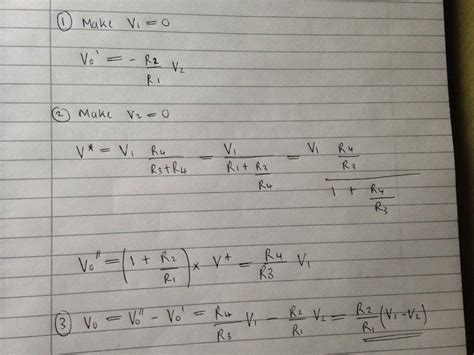 ① Make V₁ = 0
V₀' = - R₂/R₁ V₂
② Make V₂ = 0
V* = V₁ R₄/(R₃+R₄) = V₁/(R₁ + R₃/R₄) = V₁ (R₄/R₃)/(1 + R₄/R₃)
V₀'' = (1 + R₂/R₁) × V* = R₄/R₃ V₁
③ V₀ = V₀'' - V₀' = R₄/R₃ V₁ - R₂/R₁ V₂ = R₂/R₁ (V₁-V₂)